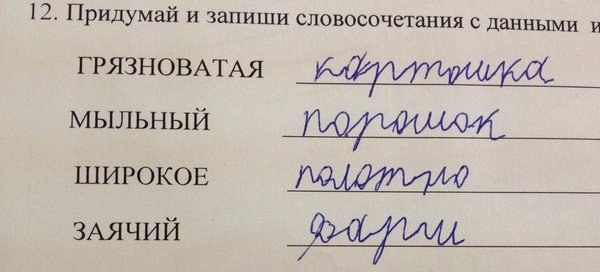 12. Придумай и запиши словосочетания с данными и
ГРЯЗНОВАТАЯ картошка
МЫЛЬНЫЙ порошок
ШИРОКОЕ полотно
ЗАЯЧИЙ